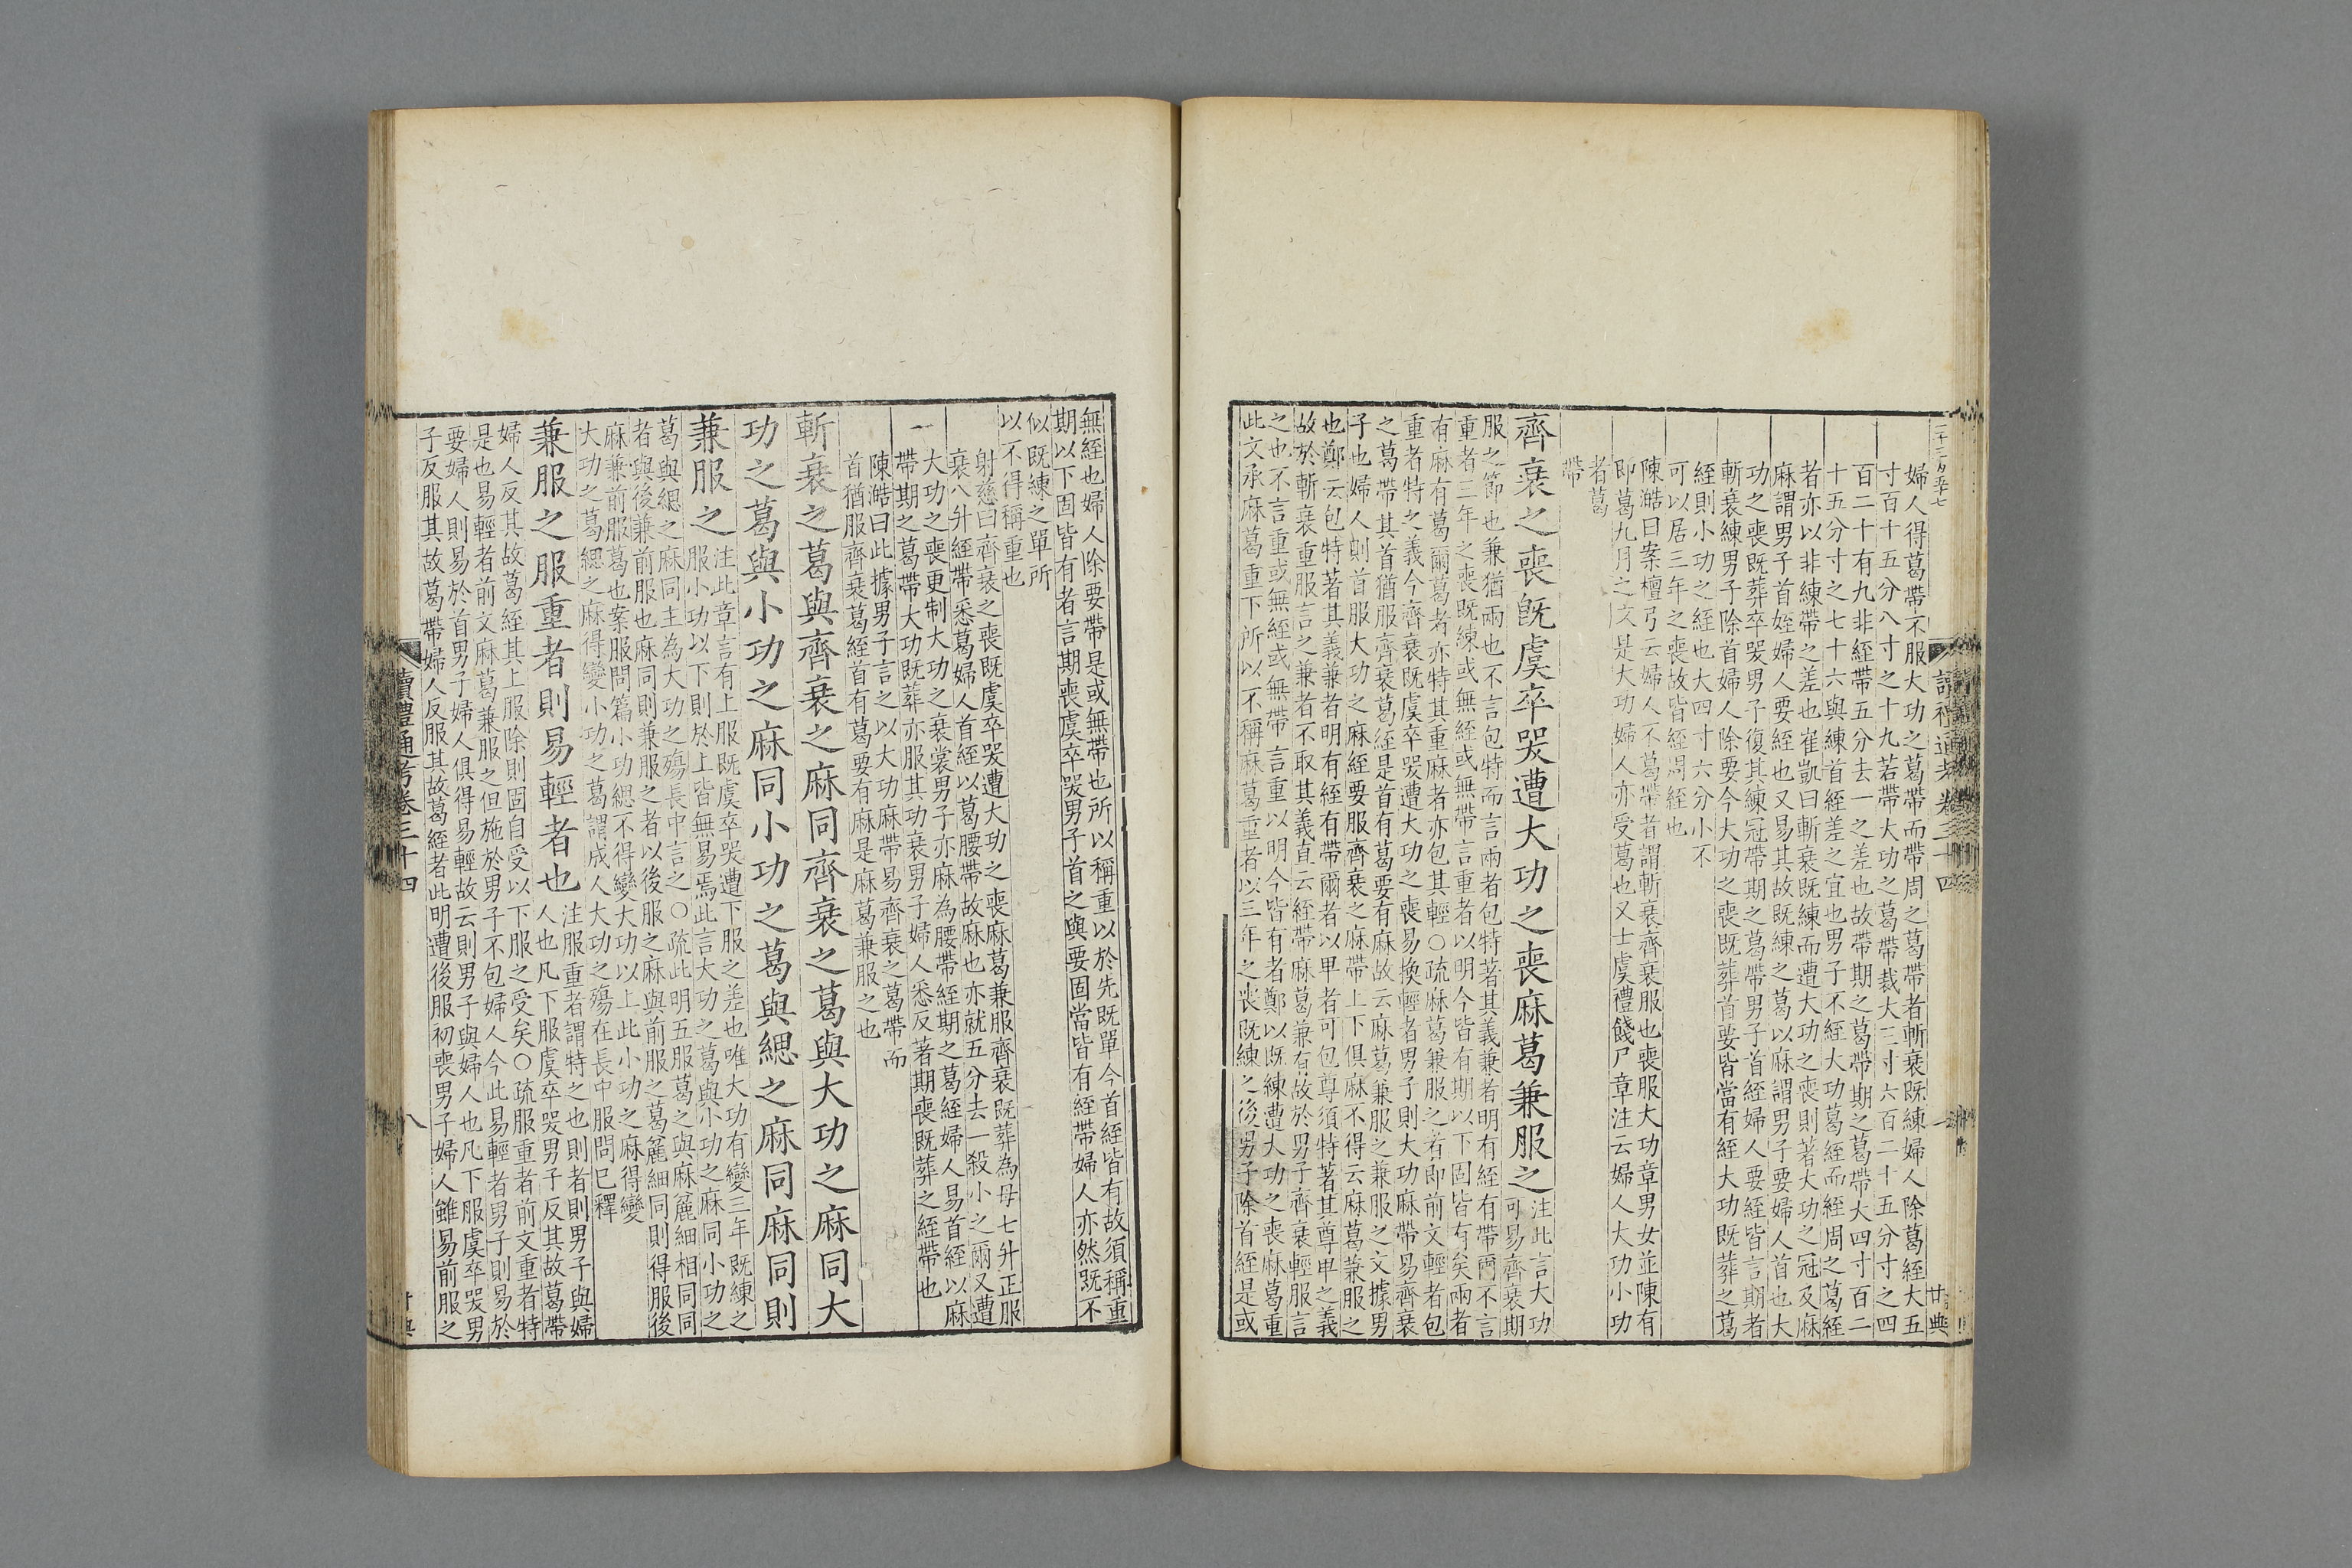 婦人得葛帶不服大功之葛帶而帶周之葛帶者斬衰既練婦人除葛絰大五
寸百十五分八寸之十九若帶大功之葛帶裁大三寸六百二十五分寸之四
百二十有九非絰帶五分去一之差也故帶期之葛帶期之葛帶大四寸百二
十五分寸之七十六與練首絰差之宜也男子不絰大功葛絰而絰周之葛絰
者亦以非練帶之差也崔凱曰斬衰既練而遭大功之喪則著大功之冠及麻
麻謂男子首絰婦人要絰也又易其故既練之葛以麻謂男子要婦人首也大
功之喪既葬卒哭男子復其練冠帶期之葛帶男子首絰婦人要絰皆言期者
斬衰練男子除首婦人除要今大功之喪既葬首要皆當有絰大功既葬之葛
絰則小功之絰也大四寸六分小不
可以居三年之喪故皆絰周絰也
陳澔曰案檀弓云婦人不葛帶者謂斬衰齊衰服也喪服大功章男女並陳有
即葛九月之文是大功婦人亦受葛也又士虞禮餞尸章注云婦人大功小功
者葛
帶
齊衰之喪旣虞卒哭遭大功之喪麻葛兼服之
注此言大功
可易齊衰期
服之節也兼猶兩也不言包特而言兩者包特著其義兼者明有絰有帶爾不言
重者三年之喪既練或無絰或無帶言重者以明今皆有期以下固皆有矣兩者
有麻有葛爾葛者亦特其重麻者亦包其輕〇疏麻葛兼服之者即前文輕者包
重者特之義今齊衰既虞卒哭遭大功之喪易換輕者男子則大功麻帶易齊衰
之葛帶其首猶服齊衰葛絰是首有葛要有麻故云麻葛兼服之兼服之文據男
子也婦人則首服大功之麻絰要服齊衰之麻帶上下俱麻不得云麻葛兼服之
也鄭云包特著其義兼者明有絰有帶爾者以卑者可包尊須特著其尊卑之義
故於斬衰重服言之兼者不取其義直云絰帶麻葛兼有故於男子齊衰輕服言
之也不言重或無絰或無帶言重以明今皆有者鄭以既練遭大功之喪麻葛重
此文承麻葛重下所以不稱麻葛重者以三年之喪既練之後男子除首絰是或
無絰也婦人除要帶是或無帶也所以稱重以於先既單今首絰皆有故須稱重
期以下固皆有者言期喪虞卒哭男子首之與要固當皆有絰帶婦人亦然既不
似既練之單所
以不得稱重也
射慈曰齊衰之喪既虞卒哭遭大功之喪麻葛兼服齊衰既葬為母七升正服
衰八升絰帶悉葛婦人首絰以葛腰帶故麻也亦就五分去一殺小之爾又遭
大功之喪更制大功之衰裳男子亦麻為腰帶絰期之葛絰婦人易首絰以麻
帶期之葛帶大功既葬亦服其功衰男子婦人悉反著期喪既葬之絰帶也
陳澔曰此據男子言之以大功麻帶易齊衰之葛帶而
首猶服齊衰葛絰首有葛要有麻是麻葛兼服之也
斬衰之葛與齊衰之麻同齊衰之葛與大功之麻同大
功之葛與小功之麻同小功之葛與緦之麻同麻同則
兼服之
注此章言有上服既虞卒哭遭下服之差也唯大功有變三年既練之
服小功以下則於上皆無易焉此言大功之葛與小功之麻同小功之
葛與緦之麻同主為大功之殤長中言之〇疏此明五服葛之與麻麤細相同同
者與後兼前服也麻同則兼服之者以後服之麻與前服之葛麤細同則得服後
麻兼前服葛也案服問篇小功緦不得變大功以上此小功之麻得變
大功之葛緦之麻得變小功之葛謂成人大功之殤在長中服問已釋
兼服之服重者則易輕者也
注服重者謂特之也則者則男子與婦
人也凡下服虞卒哭男子反其故葛帶
婦人反其故葛絰其上服除則固自受以下服之受矣〇疏服重者前文重者特
是也易輕者前文麻葛兼服之但施於男子不包婦人今此易輕者男子則易於
要婦人則易於首男子婦人俱得易輕故云則男子與婦人也凡下服虞卒哭男
子反服其故葛帶婦人反服其故葛絰者此明遭後服初喪男子婦人雖易前服之
讀禮通考卷三十四
八